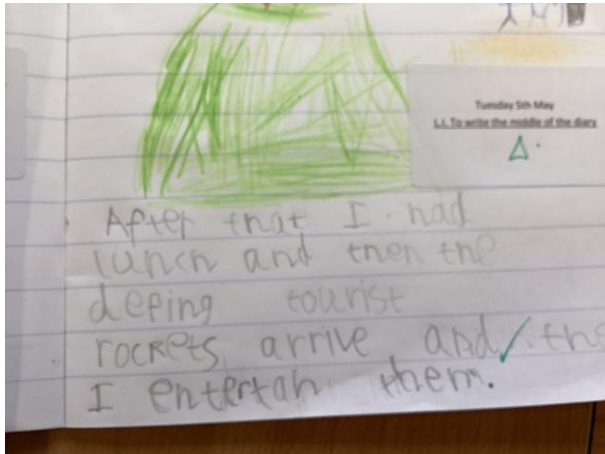 Tuesday 5th May
L.I. To write the middle of the diary
After that I had
lunch and then the
defing tourist
rockets arrive and the
I entertan them.